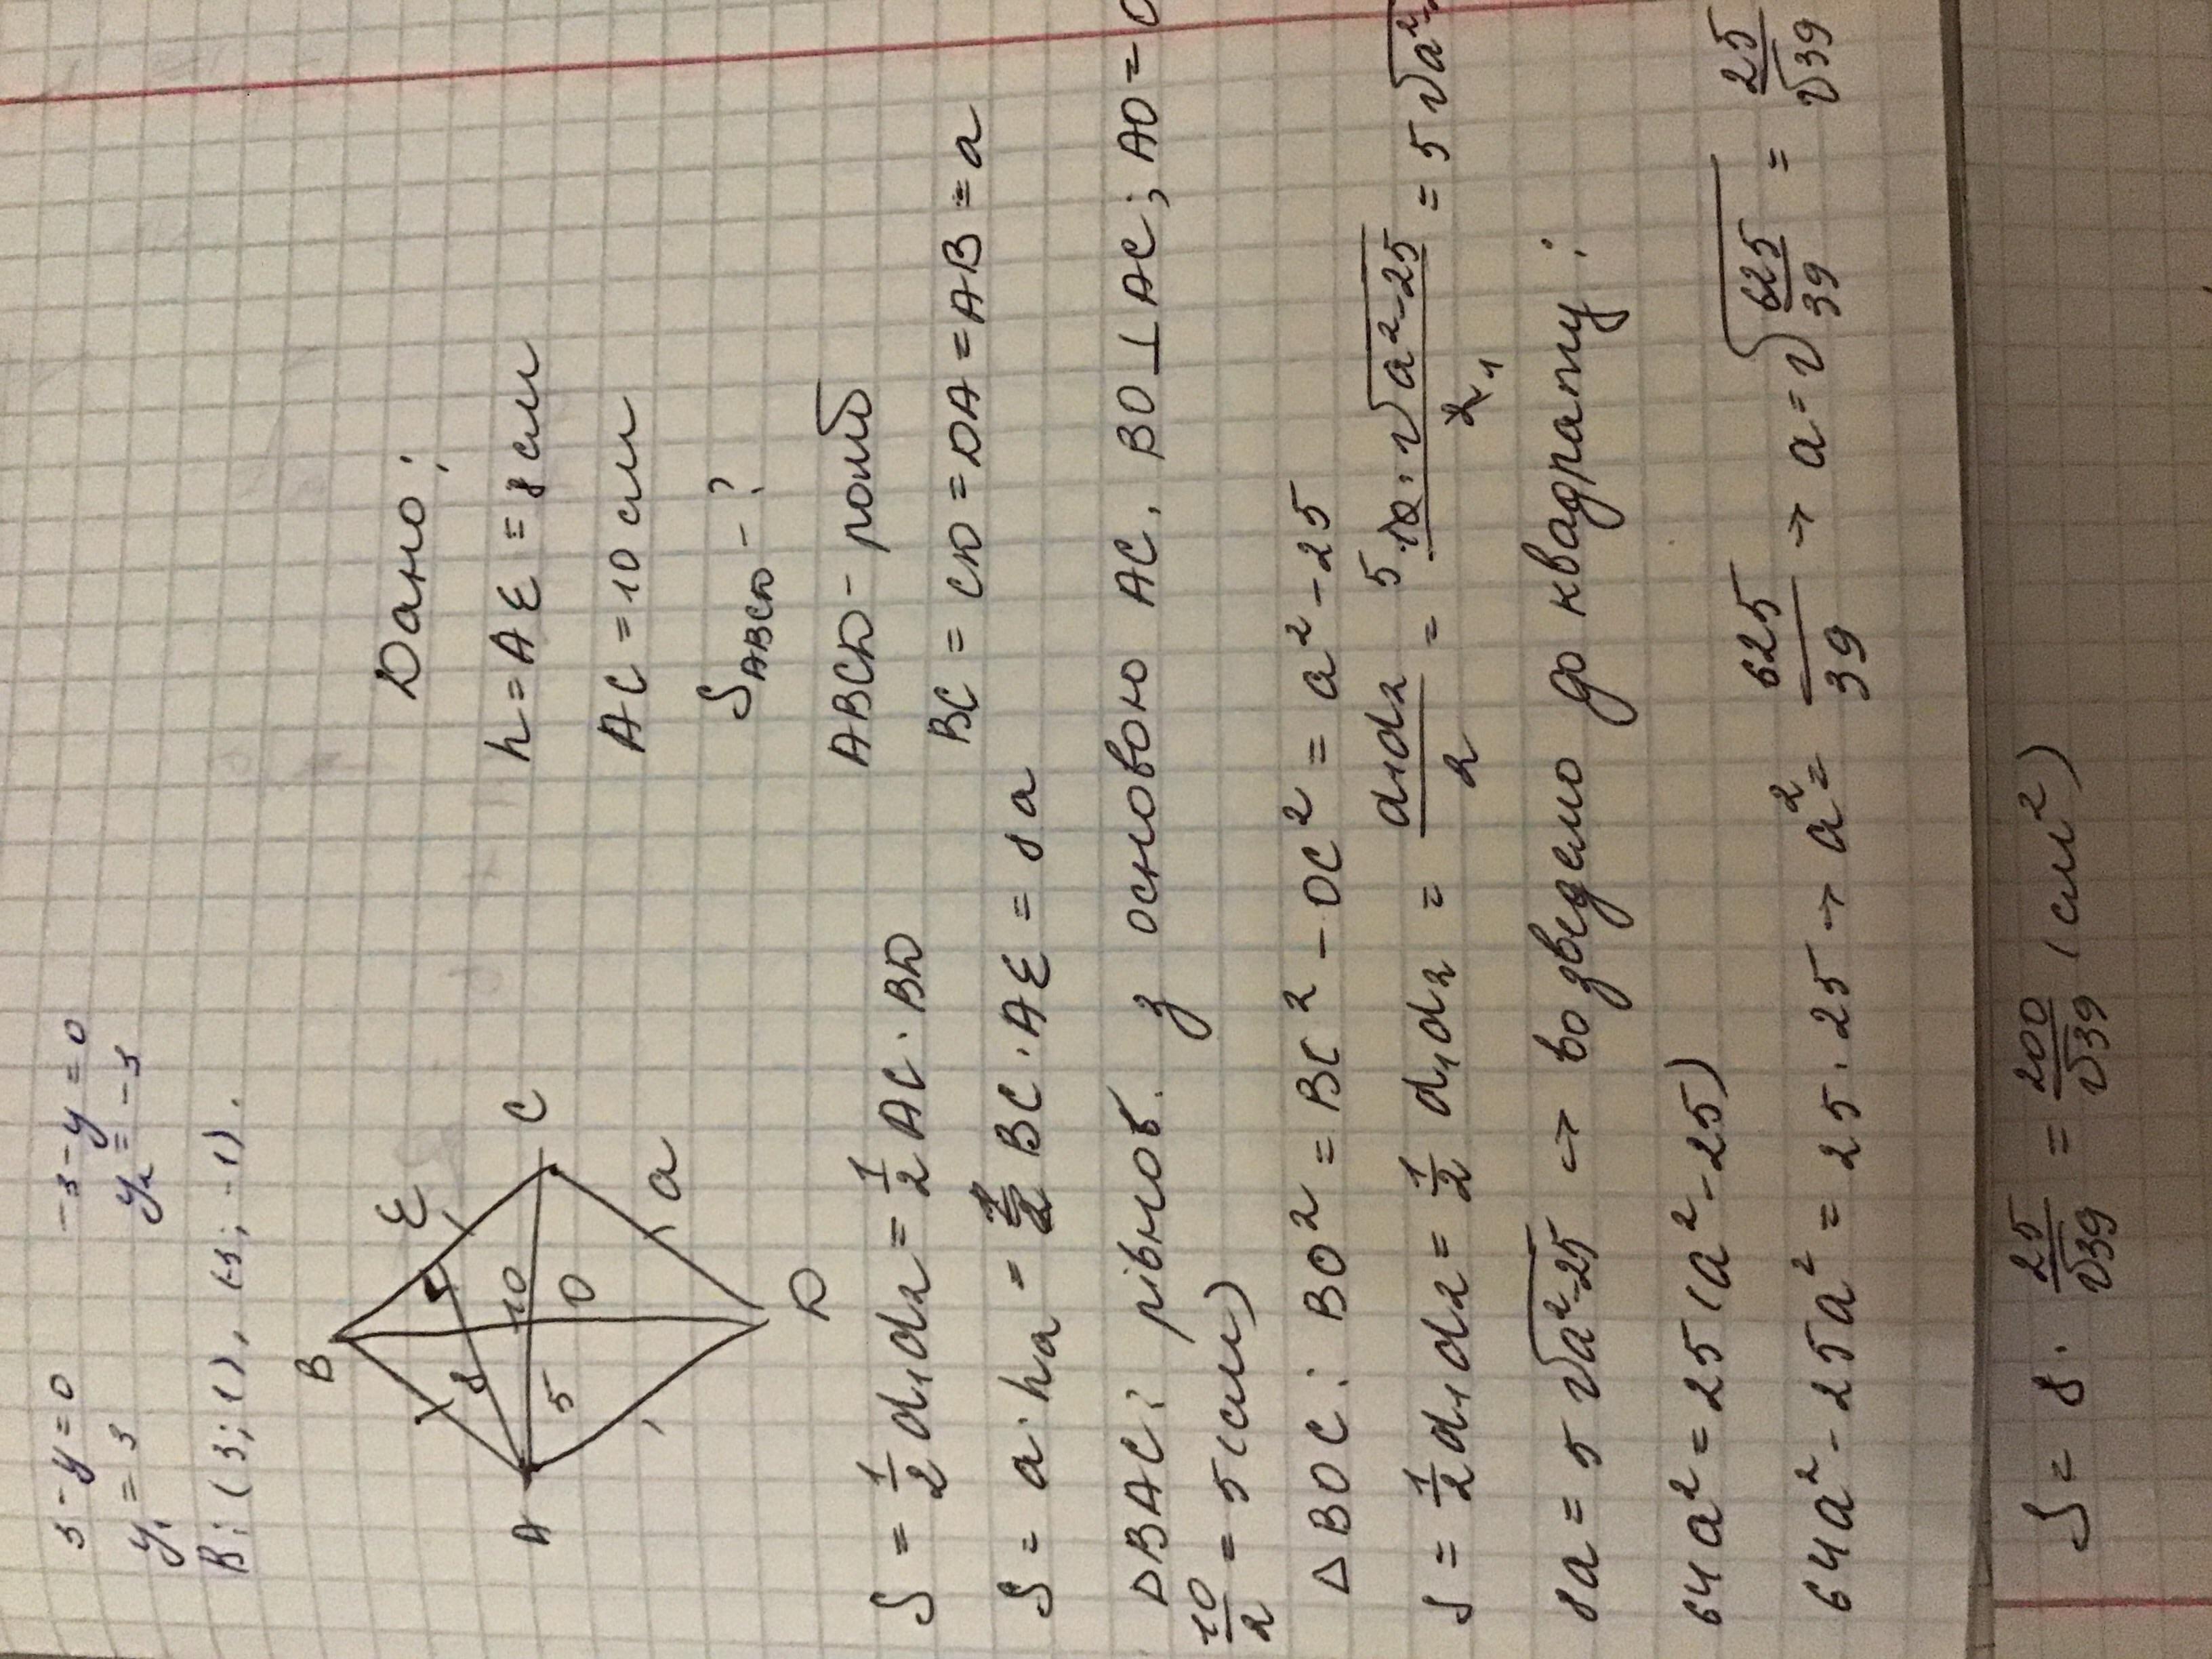 3-y=0 -3-y=0
y₁=3 y₂=-3
B: (3; 1), (-3; -1).
B
E
C
A
8
10
5
O
a
D
Дано:
h = AE = 8 см
AC = 10 см
S_ABCD - ?
ABCD - ромб
S = 1/2 d₁d₂ = 1/2 AC · BD
BC = CD = DA = AB = a
S = a · ha = BC · AE = 8a
△BAC: рівноб. з основою AC, BO ⊥ AC; AO =
10/2 = 5 (см)
△BOC: BO² = BC² - OC² = a² - 25
S = 1/2 d₁d₂ = 1/2 d₁d₂ = d₁d₂/2 = 10 · √(a²-25)/2 = 5√a²-
8a = 5√(a²-25) → возведемо до квадрату:
64a² = 25(a² - 25)
64a² - 25a² = 25 · 25 → a² = 625/39 → a = √(625/39) = 25/√39
S = 8 · 25/√39 = 200/√39 (см²)